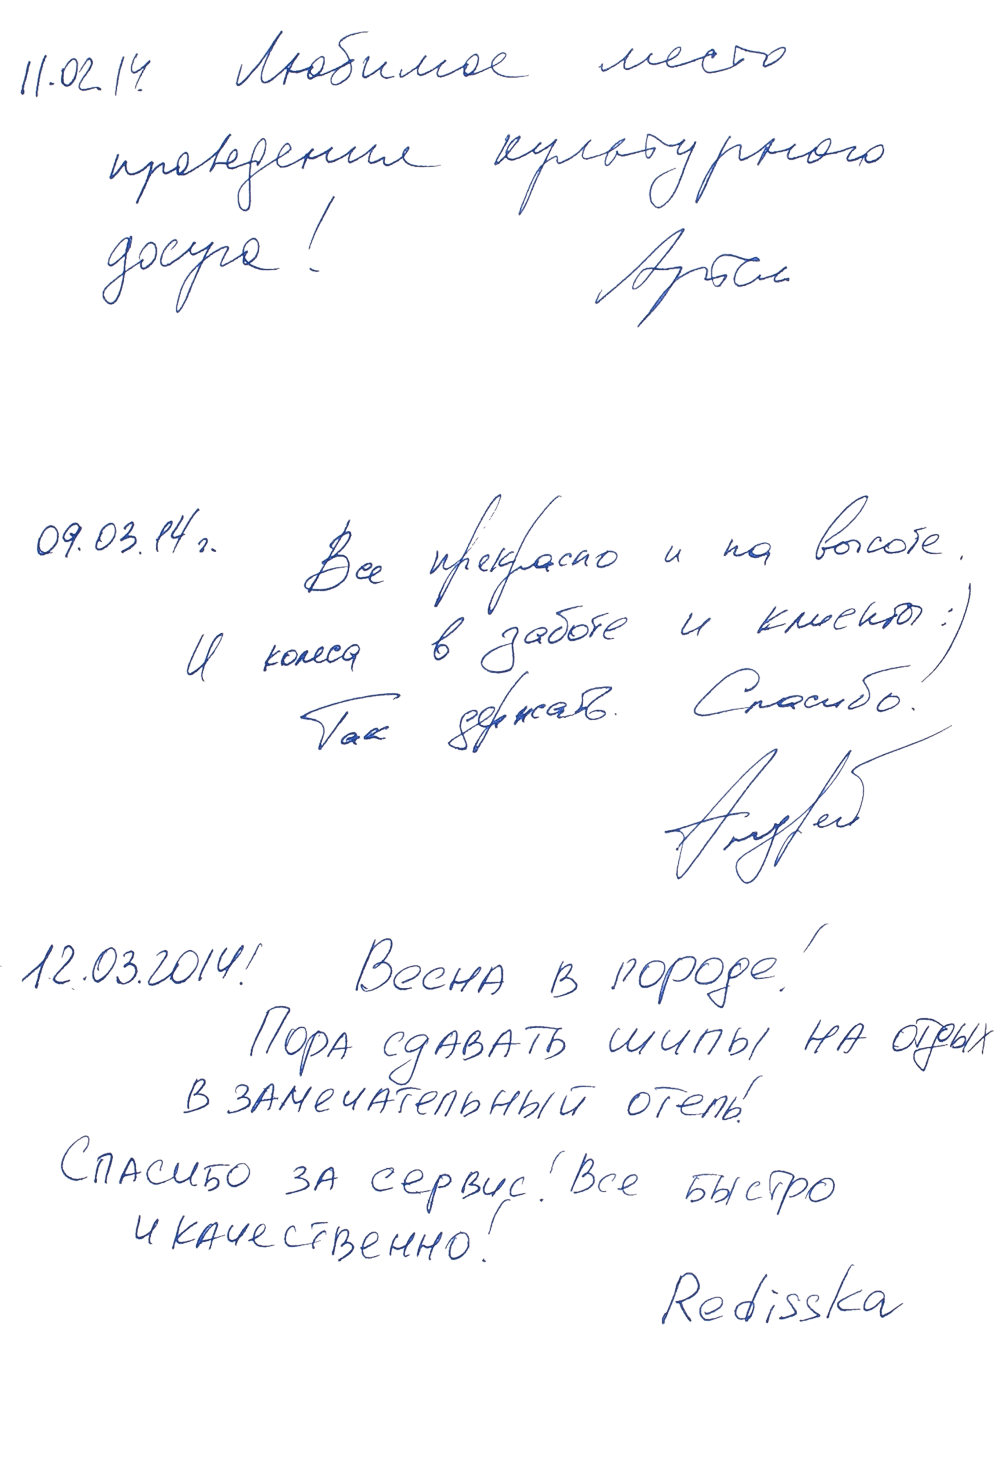 11.02.14. Любимое место
проведения культурного
досуга!
Артём
09.03.14 г. Все прекрасно и на высоте.
И колеса в заботе и клиенты :)
Так держать. Спасибо.
Андрей
12.03.2014! Весна в городе!
Пора сдавать шипы на отдых
в замечательный отель!
Спасибо за сервис! Все быстро
и качественно!
Redisska